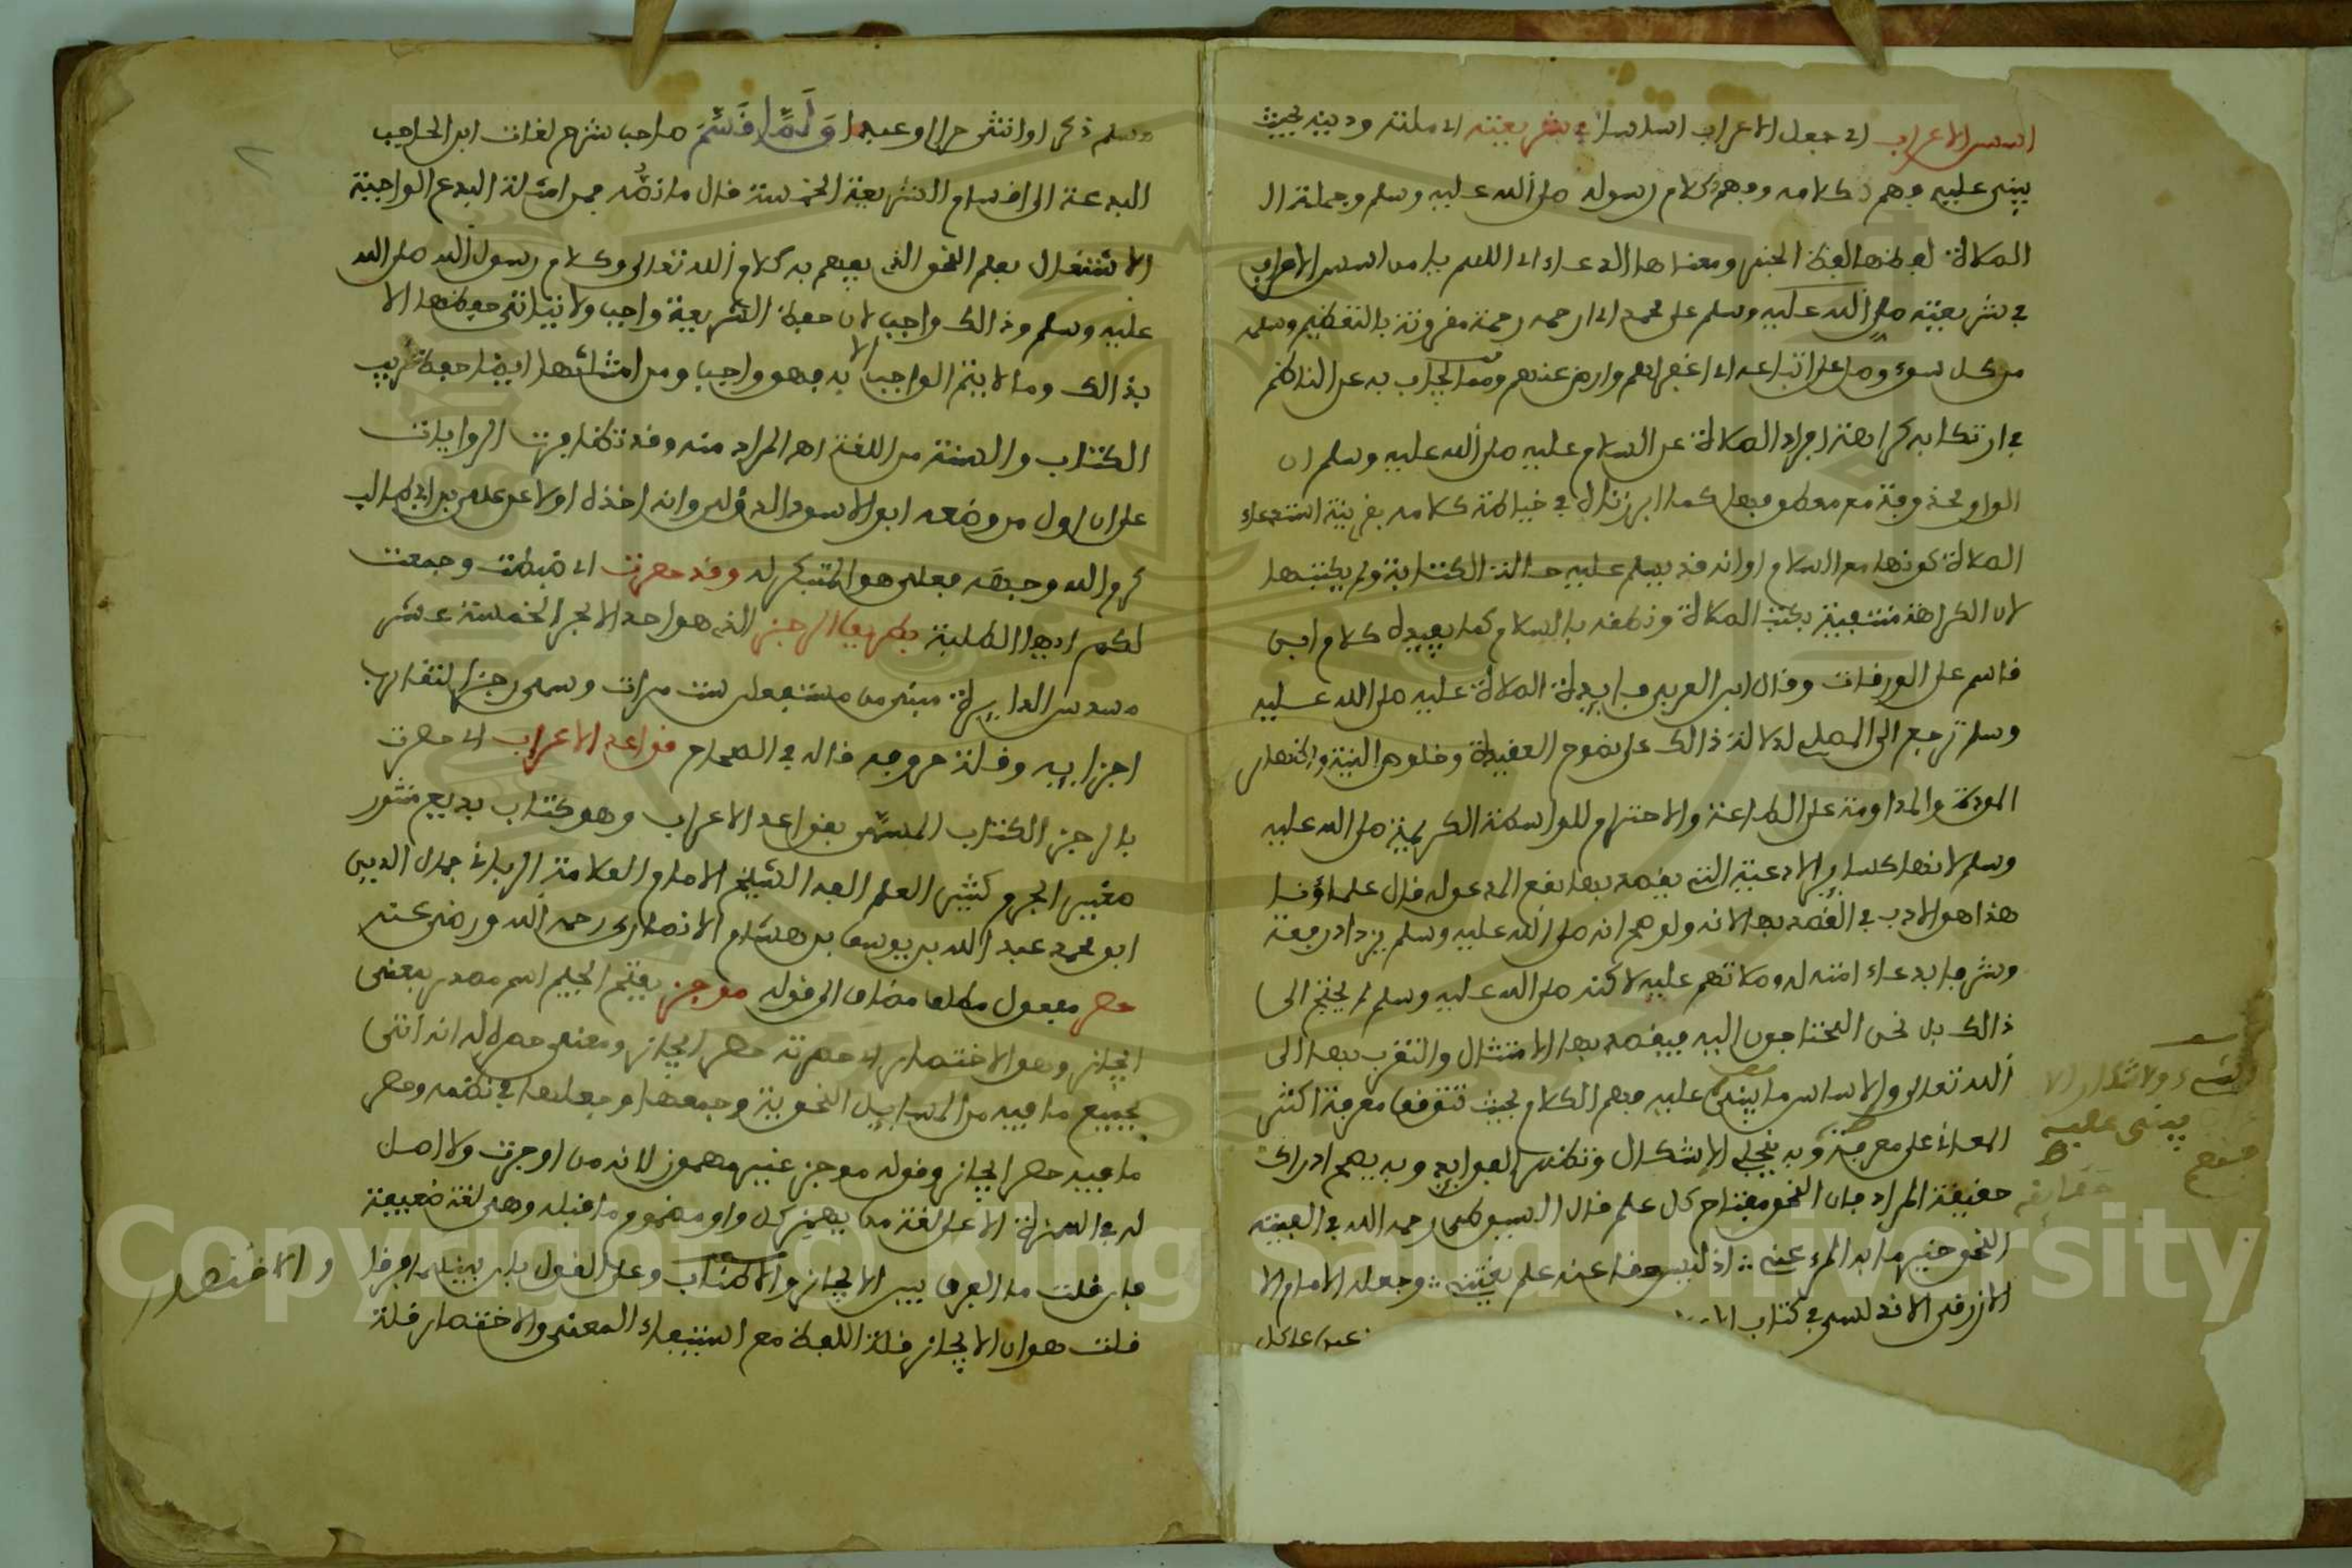 اسس الاعراب اي جعل الاعراب اساسا في شريعته اي ملته ودينه بحيث
يبنى عليه فهم كلامه وفهم كلام رسوله صلى الله عليه وسلم وجملة ال
الصلاة لفظها لفظ الخبر ومعناها الدعاء اي اللهم يا من اسس الاعراب
في شريعته صلى الله عليه وسلم على محمد اي ارحمه رحمة مقرونة بالتعظيم وسلمه
من كل سوء وصل على اتباعه اي اغفر لهم وارض عنهم ومما يجاب به عن الناظم
في ارتكابه كراهة افراد الصلاة عن السلام عليه صلى الله عليه وسلم ان
الواو محذوفة مع معطوفها كما ابن زنال في خياطة كلامه بقرينة استدعاء
الصلاة كونها مع السلام او انه قد يسلم عليه حالة الكتابة ولم يكتبها
لان الكراهة منتفية بكتب الصلاة ونطقه بالسلام كما يفيده كلام ابن
قاسم على الورقات وقال ابن العربي فايدة الصلاة عليه صلى الله عليه
وسلم ترجع الى المصلي لدلالة ذالك على نصوح العقيدة وخلوص النية واظهار
المودة والمداومة على الطاعة والاحترام للواسطة الكريمة صلى الله عليه
وسلم لانها كساير الادعية التي يقصد بها نفع المدعو له قال علماؤنا
هذا هو الادب في القصد بها لانه ولو فهم انه صلى الله عليه وسلم يزداد رفعة
وشرفا بدعاء امته له وصلاتهم عليه لاكنه صلى الله عليه وسلم لم يحتج الى
ذالك بل نحن المحتاجون اليه فيقصد بها الامتثال والتقرب بها الى
الله تعالى والاساس ما يبنى عليه فهم الكلام بحيث تتوقف معرفة اكثر
المعاني على معرفته وبه ينجلي الاشكال وتظهر الفوايد وبه يفهم ادراك
حقيقة المراد فان النحو مفتاح كل علم قال السيوطي رحمه الله في الفيته
النحو خير ما به المرء عني ∴ اذ ليس علم عنه حقا يغتني ∴ وجعل الامام الا
الازرقي الاندلسي في كتاب
على كل
يبنى عليه
وسلم ذكرا او انثى حرا او عبدا وَلَمَّا قَسَّمَ صاحب شرح لغات ابن الحاجب
البدعة الى اقسام الشريعة الخمسة قال ما نصه فمن امثلة البدع الواجبة
الاشتغال بعلم النحو الذي يفهم به كلام الله تعالى وكلام رسول الله صلى الله
عليه وسلم وذالك واجب لان حفظ الشريعة واجب ولا يتاتى حفظها الا
بذالك وما لا يتم الواجب الا به فهو واجب ومن امثلتها ايضا حفظ غريب
الكتاب والسنة من اللغة اهـ المراد منه وقد تظافرت الروايات
على ان اول من وضعه ابو الاسود الدؤلي وانه اخذه اولا عن علي بن ابي طالب
كرم الله وجهه فعلي هو المبتكر له وقد حصرت اي ضبطت وجمعت
لكم ايها الطلبة بطريق الرجز الذي هو احد الابحر الخمسة عشر
مسدس الدايرة مبني من مستفعلن ست مرات وسمي رجزا لتقارب
اجزايه وقلة حروفه قاله في الصحاح قواعد الاعراب اي حصرت
بالرجز الكتاب المسمى بقواعد الاعراب وهو كتاب بديع منثور
صغير الجرم كثير العلم الفه الشيخ الامام العلامة الرباني جمال الدين
ابو محمد عبد الله بن يوسف بن هشام الانصاري رحمه الله ورضي عنه
حصر مفعول مطلق مضاف الى قوله موجز بفتح الجيم اسم مصدر بمعنى
ايجاز وهو الاختصار اي حصرته حصر ايجاز ومعنى حصره له انه اتى
بجميع ما فيه من المسايل النحوية وجمعها وجعلها في نظمه وحصر
ما فيه حصر ايجاز وقوله موجز غير مهموز لانه من اوجزت ولا اصل
له في الهمزة الا على لغة من يهمز كل واو مضموم ما قبله وهي لغة ضعيفة
فان قلت ما الفرق بين الايجاز والاطناب وعلى القول بان بينهما فرقا
قلت هو ان الايجاز قلة اللفظ مع استيفاء المعنى والاختصار قلة
والاختصار
Copyright © King Saud University